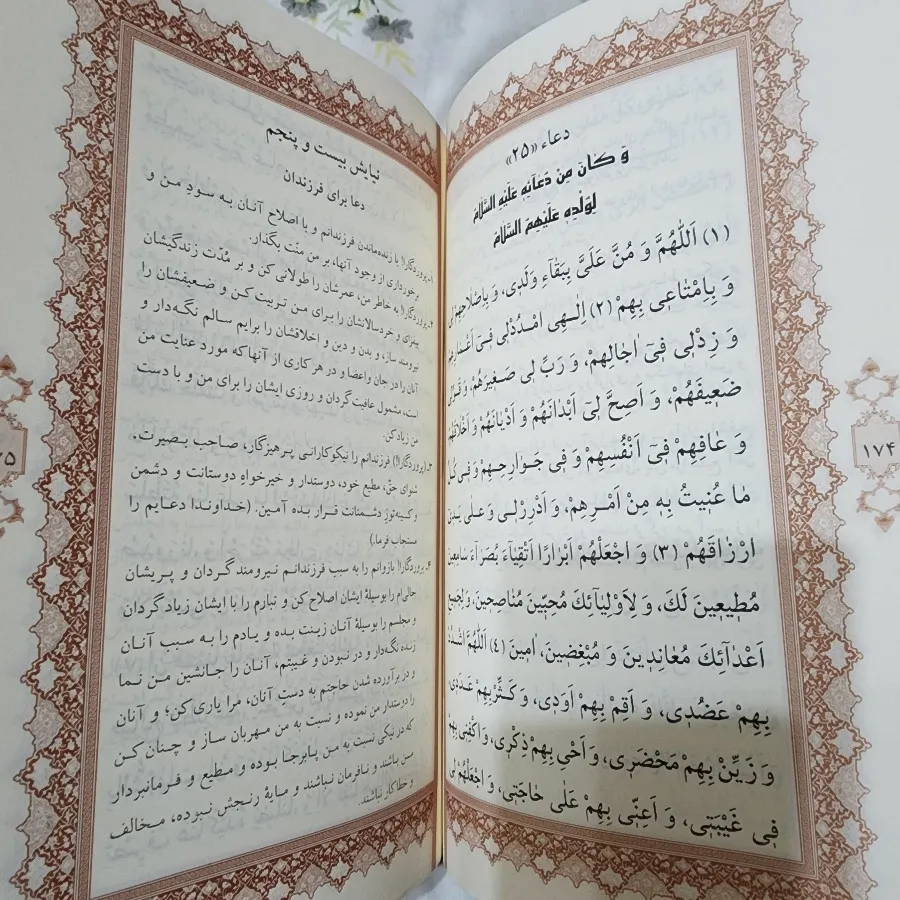 دعاء «۲۵»
وَ كَانَ مِنْ دُعَآئِهِ عَلَيْهِ السَّلَامُ
لِوُلْدِهِ عَلَيْهِمُ السَّلَامُ
(۱) اَللّٰهُمَّ وَ مُنَّ عَلَيَّ بِبَقَآءِ وُلْدِي، وَ بِاِصْلَاحِهِمْ لِي
وَ بِاِمْتَاعِي بِهِمْ (۲) اِلٰهِي امْدُدْ لِي فِيٓ اَعْمَارِهِمْ
وَ زِدْ لِي فِيٓ اٰجَالِهِمْ، وَ رَبِّ لِي صَغِيرَهُمْ، وَ قَوِّ لِي
ضَعِيفَهُمْ، وَ اَصِحَّ لِيٓ اَبْدَانَهُمْ وَ اَدْيَانَهُمْ وَ اَخْلَاقَهُمْ
وَ عَافِهِمْ فِيٓ اَنْفُسِهِمْ وَ فِي جَوَارِحِهِمْ وَ فِي كُلِّ
مَا عُنِيتُ بِهِ مِنْ اَمْرِهِمْ، وَ اَدْرِرْ لِي وَ عَلٰى يَدِي
اَرْزَاقَهُمْ (۳) وَ اجْعَلْهُمْ اَبْرَارًا اَتْقِيَآءَ بُصَرَآءَ سَامِعِينَ
مُطِيعِينَ لَكَ، وَ لِاَوْلِيَآئِكَ مُحِبِّينَ مُنَاصِحِينَ، وَ لِجَمِيعِ
اَعْدَآئِكَ مُعَانِدِينَ وَ مُبْغِضِينَ، اٰمِينَ (٤) اَللّٰهُمَّ اشْدُدْ
بِهِمْ عَضُدِي، وَ اَقِمْ بِهِمْ اَوَدِي، وَ كَثِّرْ بِهِمْ عَدَدِي،
وَ زَيِّنْ بِهِمْ مَحْضَرِي، وَ اَحْيِ بِهِمْ ذِكْرِي، وَ اكْفِنِي بِهِمْ
فِي غَيْبَتِي، وَ اَعِنِّي بِهِمْ عَلٰى حَاجَتِي، وَ اجْعَلْهُمْ لِي
۱۷۴
نیایش بیست و پنجم
دعا برای فرزندان
۱. پروردگارا! با زنده‌ماندن فرزندانم و با اصلاح آنان به سودِ من و
برخورداری از وجود آنها، بر من منّت بگذار.
۲. پروردگارا! به خاطر من، عمرشان را طولانی کن و بر مُدّت زندگیشان
بیفزای و خردسالانشان را برای من تربیت کن و ضعیفشان را
نیرومند ساز، و بدن و دین و اخلاقشان را برایم سالم نگه‌دار و
آنان را در جان و اعضا و در هر کاری از آنها که مورد عنایت من
است، مشمول عافیت گردان و روزی ایشان را برای من و با دست
من زیاد کن.
۳. (پروردگارا!) فرزندانم را نیکوکارانی پرهیزگار، صاحب بصیرت،
شنوای حقّ، مطیع خود، دوستدار و خیرخواهِ دوستانت و دشمن
و کینه‌توزِ دشمنانت قرار بده آمین. (خداوندا دعایم را
مستجاب فرما.)
۴. پروردگارا! بازوانم را به سبب فرزندانم نیرومند گردان و پریشان
حالی‌ام را بوسیلهٔ ایشان اصلاح کن و تبارم را با ایشان زیاد گردان
و مجلسم را بوسیلهٔ آنان زینت بده و یادم را به سبب آنان
زنده نگه‌دار و در نبودن و غیبتم، آنان را جانشین من نما
و در برآورده شدن حاجتم به دستِ آنان، مرا یاری کن؛ و آنان
را دوستدار من نموده و نسبت به من مهربان ساز و چنان کن
که در نیکی نسبت به من پابرجا بوده و مطیع و فرمانبردار
من باشند و نافرمان نباشند و مایهٔ رنجش نبوده، مخالف
و خطاکار نباشند.